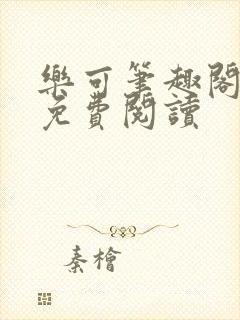 樂可筆趣閣
免費閱讀
秦檜